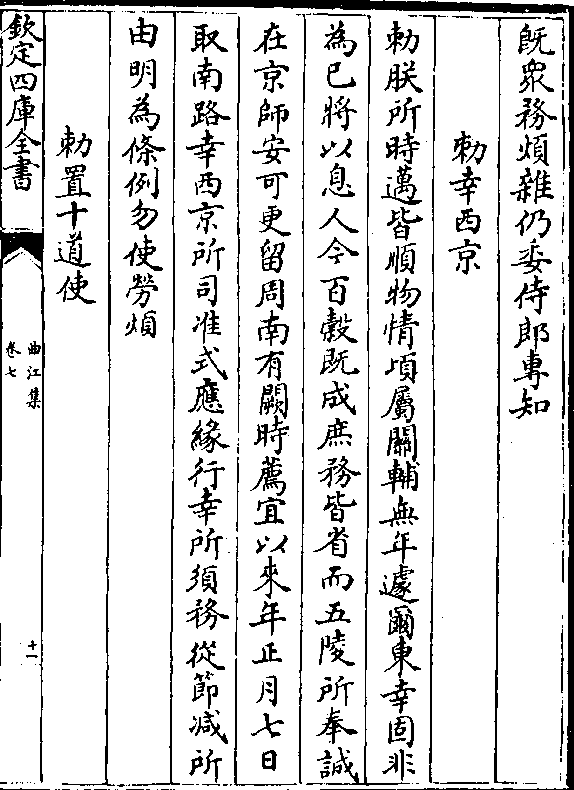 既衆務煩雜仍委侍郎專知
勅幸西京
勅朕所時邁皆順物情頃屬關輔無年遽爾東幸固非
為已將以息人今百穀既成庶務皆省而五陵所奉誠
在京師安可更留周南有闕時薦宜以來年正月七日
取南路幸西京所司准式應緣行幸所須務從節减所
由明為條例勿使勞煩
勅置十道使
欽定四庫全書
曲江集
卷七
十一